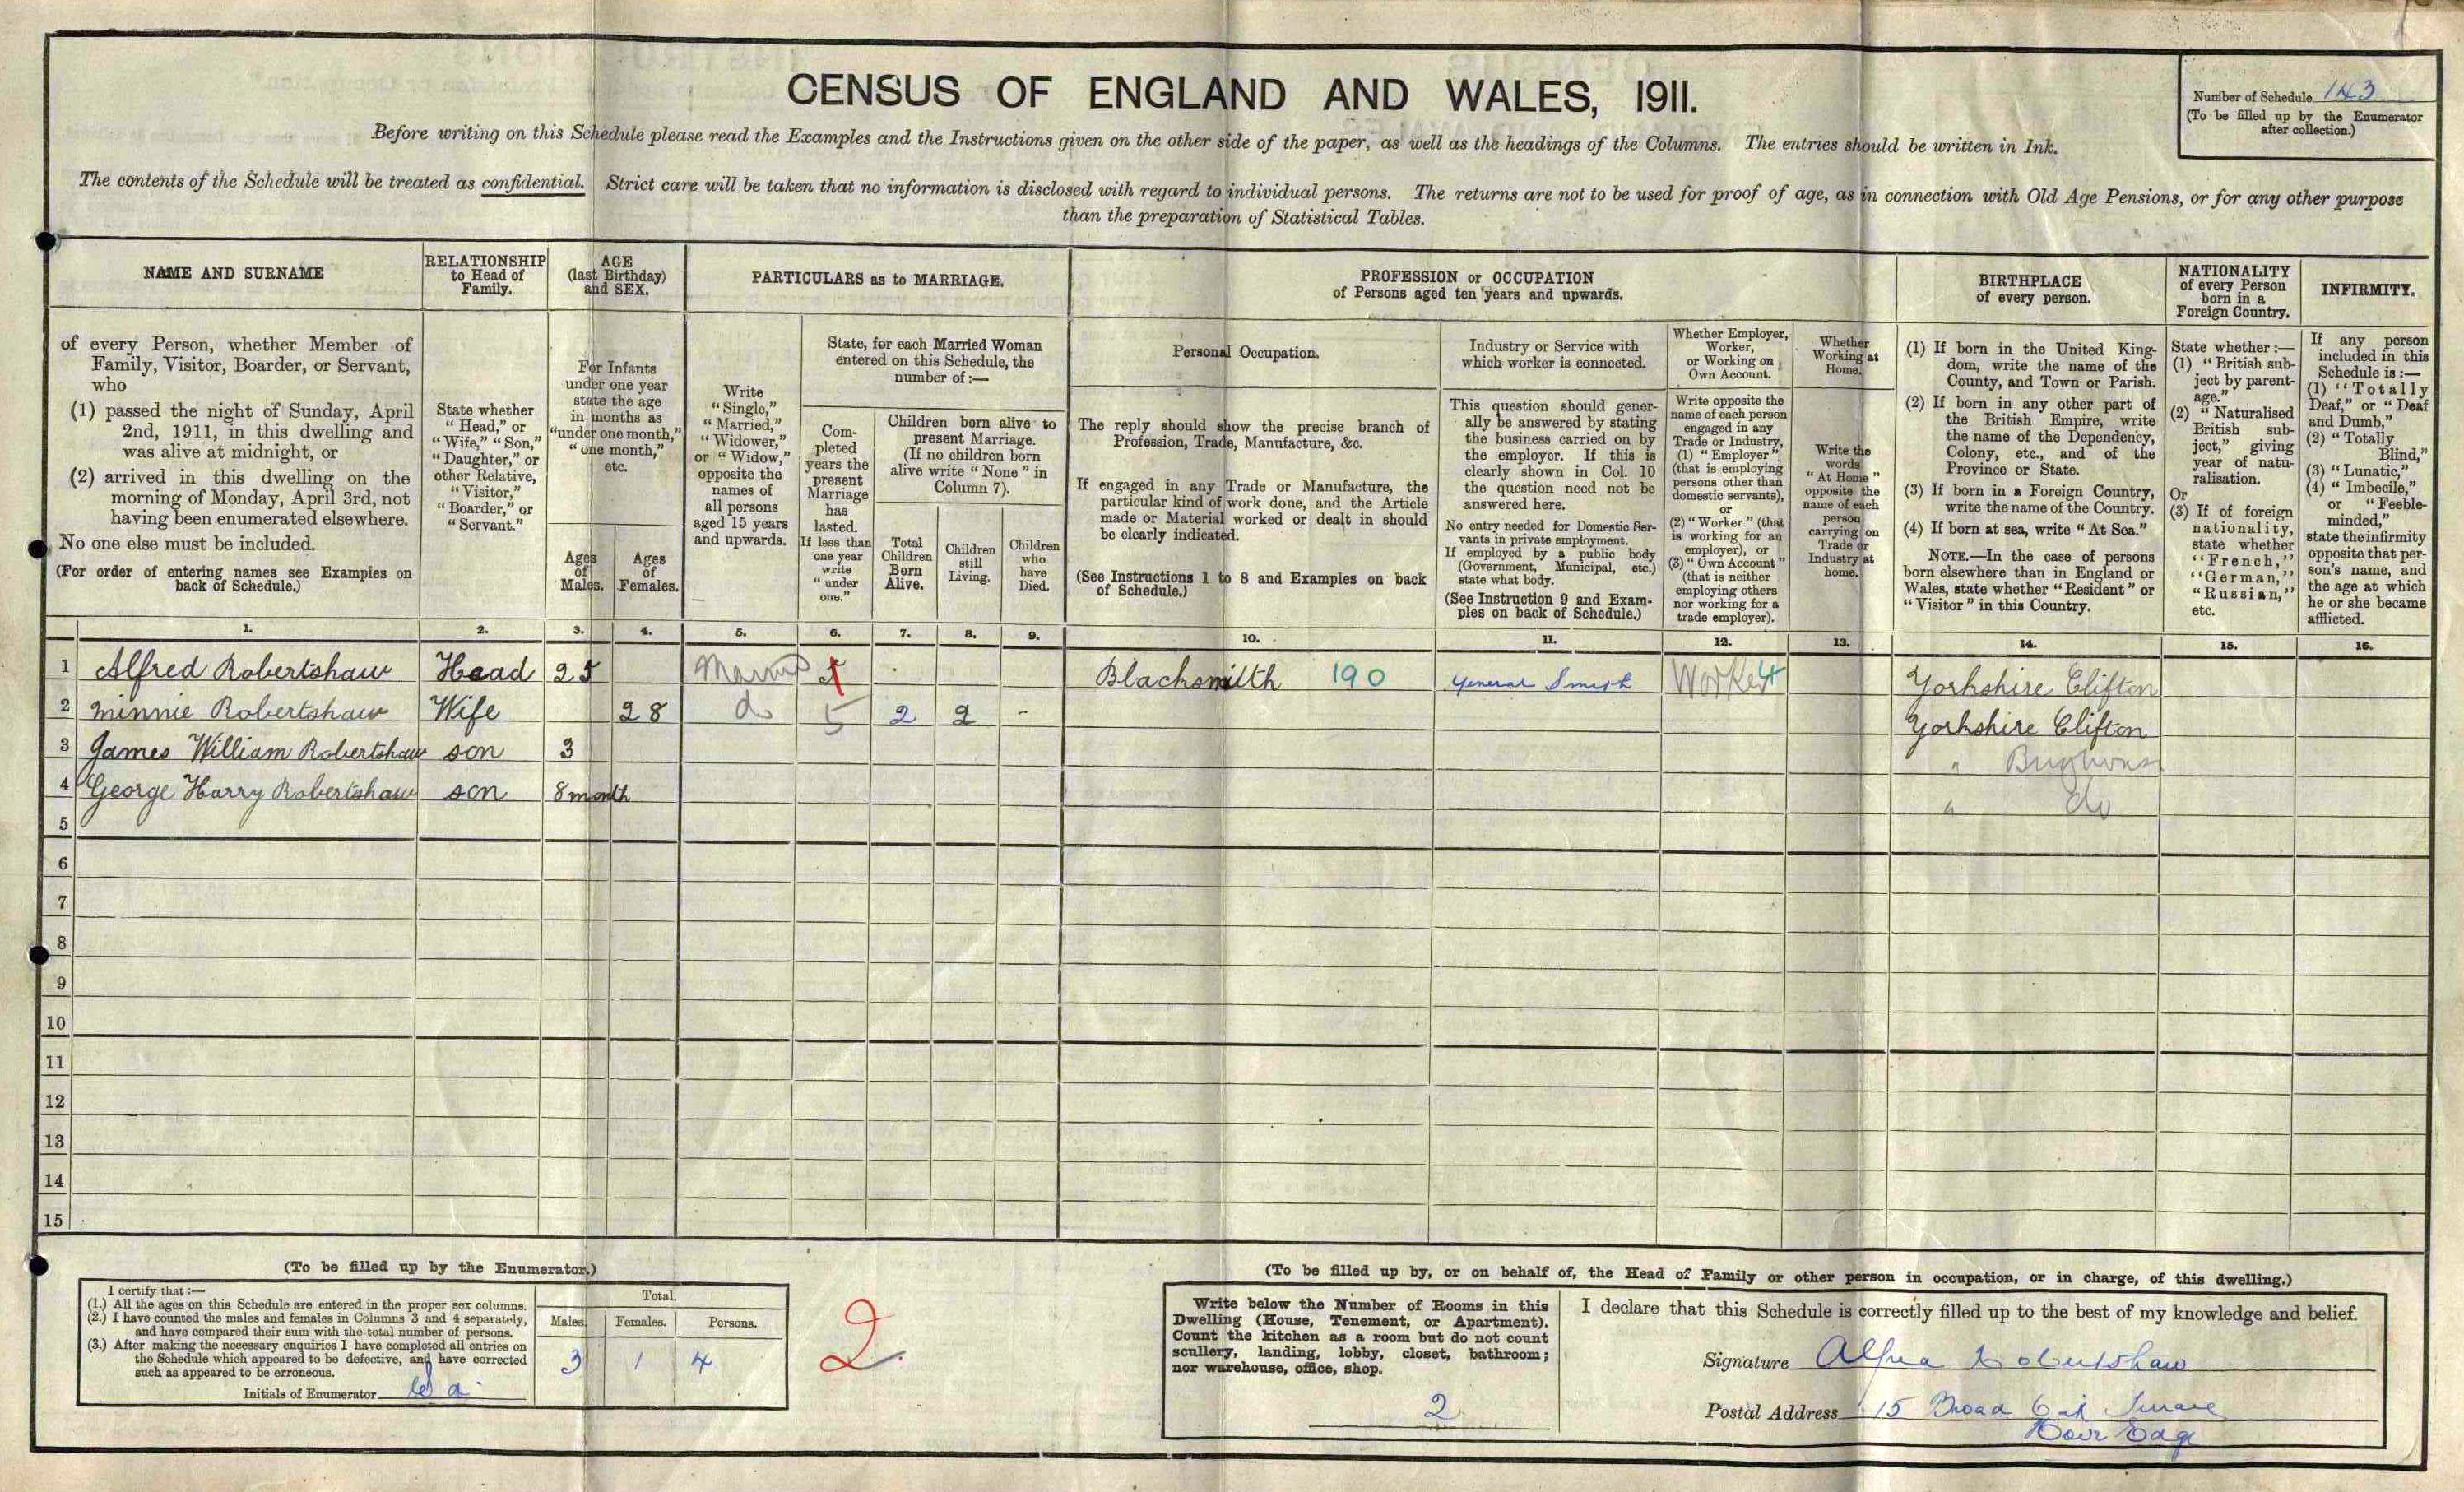 CENSUS OF ENGLAND AND WALES, 1911.
Number of Schedule 143
(To be filled up by the Enumerator
after collection.)
Before writing on this Schedule please read the Examples and the Instructions given on the other side of the paper, as well as the headings of the Columns. The entries should be written in Ink.
The contents of the Schedule will be treated as confidential. Strict care will be taken that no information is disclosed with regard to individual persons. The returns are not to be used for proof of age, as in connection with Old Age Pensions, or for any other purpose
than the preparation of Statistical Tables.
NAME AND SURNAME
of every Person, whether Member of
Family, Visitor, Boarder, or Servant,
who
(1) passed the night of Sunday, April
2nd, 1911, in this dwelling and
was alive at midnight, or
(2) arrived in this dwelling on the
morning of Monday, April 3rd, not
having been enumerated elsewhere.
No one else must be included.
(For order of entering names see Examples on
back of Schedule.)
RELATIONSHIP
to Head of
Family.
State whether
"Head," or
"Wife," "Son,"
"Daughter," or
other Relative,
"Visitor,"
"Boarder," or
"Servant."
AGE
(last Birthday)
and SEX.
For Infants
under one year
state the age
in months as
"under one month,"
"one month,"
etc.
Ages
of
Males.
Ages
of
Females.
PARTICULARS as to MARRIAGE.
Write
"Single,"
"Married,"
"Widower,"
or "Widow,"
opposite the
names of
all persons
aged 15 years
and upwards.
State, for each Married Woman
entered on this Schedule, the
number of:—
Com-
pleted
years the
present
Marriage
has
lasted.
If less than
one year
write
"under
one."
Children born alive to
present Marriage.
(If no children born
alive write "None" in
Column 7).
Total
Children
Born
Alive.
Children
still
Living.
Children
who
have
Died.
PROFESSION or OCCUPATION
of Persons aged ten years and upwards.
Personal Occupation.
The reply should show the precise branch of
Profession, Trade, Manufacture, &c.
If engaged in any Trade or Manufacture, the
particular kind of work done, and the Article
made or Material worked or dealt in should
be clearly indicated.
(See Instructions 1 to 8 and Examples on back
of Schedule.)
Industry or Service with
which worker is connected.
This question should gener-
ally be answered by stating
the business carried on by
the employer. If this is
clearly shown in Col. 10
the question need not be
answered here.
No entry needed for Domestic Ser-
vants in private employment.
If employed by a public body
(Government, Municipal, etc.)
state what body.
(See Instruction 9 and Exam-
ples on back of Schedule.)
Whether Employer,
Worker,
or Working on
Own Account.
Write opposite the
name of each person
engaged in any
Trade or Industry,
(1) "Employer"
(that is employing
persons other than
domestic servants),
or
(2) "Worker" (that
is working for an
employer), or
(3) "Own Account"
(that is neither
employing others
nor working for a
trade employer).
Whether
Working at
Home.
Write the
words
"At Home"
opposite the
name of each
person
carrying on
Trade or
Industry at
home.
BIRTHPLACE
of every person.
(1) If born in the United King-
dom, write the name of the
County, and Town or Parish.
(2) If born in any other part of
the British Empire, write
the name of the Dependency,
Colony, etc., and of the
Province or State.
(3) If born in a Foreign Country,
write the name of the Country.
(4) If born at sea, write "At Sea."
NOTE.—In the case of persons
born elsewhere than in England or
Wales, state whether "Resident" or
"Visitor" in this Country.
NATIONALITY
of every Person
born in a
Foreign Country.
State whether:—
(1) "British sub-
ject by parent-
age."
(2) "Naturalised
British sub-
ject," giving
year of natu-
ralisation.
Or
(3) If of foreign
nationality,
state whether
"French,"
"German,"
"Russian,"
etc.
INFIRMITY.
If any person
included in this
Schedule is:—
(1) "Totally
Deaf," or "Deaf
and Dumb,"
(2) "Totally
Blind,"
(3) "Lunatic,"
(4) "Imbecile,"
or "Feeble-
minded,"
state the infirmity
opposite that per-
son's name, and
the age at which
he or she became
afflicted.
1. 2. 3. 4. 5. 6. 7. 8. 9. 10. 11. 12. 13. 14. 15. 16.
1 Alfred Robertshaw Head 25 Married 5 Blacksmith 190 General Smith Worker Yorkshire Clifton
2 Minnie Robertshaw Wife 28 do 5 2 2 - Yorkshire Clifton
3 James William Robertshaw son 3 "
4 George Harry Robertshaw son 8 month " do
5
6
7
8
9
10
11
12
13
14
15
(To be filled up by the Enumerator.)
I certify that:—
(1.) All the ages on this Schedule are entered in the proper sex columns.
(2.) I have counted the males and females in Columns 3 and 4 separately,
and have compared their sum with the total number of persons.
(3.) After making the necessary enquiries I have completed all entries on
the Schedule which appeared to be defective, and have corrected
such as appeared to be erroneous.
Initials of Enumerator
Total.
Males. Females. Persons.
3 1 4
2
(To be filled up by, or on behalf of, the Head of Family or other person in occupation, or in charge, of this dwelling.)
Write below the Number of Rooms in this
Dwelling (House, Tenement, or Apartment).
Count the kitchen as a room but do not count
scullery, landing, lobby, closet, bathroom;
nor warehouse, office, shop.
2
I declare that this Schedule is correctly filled up to the best of my knowledge and belief.
Signature Alfred Robertshaw
Postal Address 15 Broad Oak Square
Edge